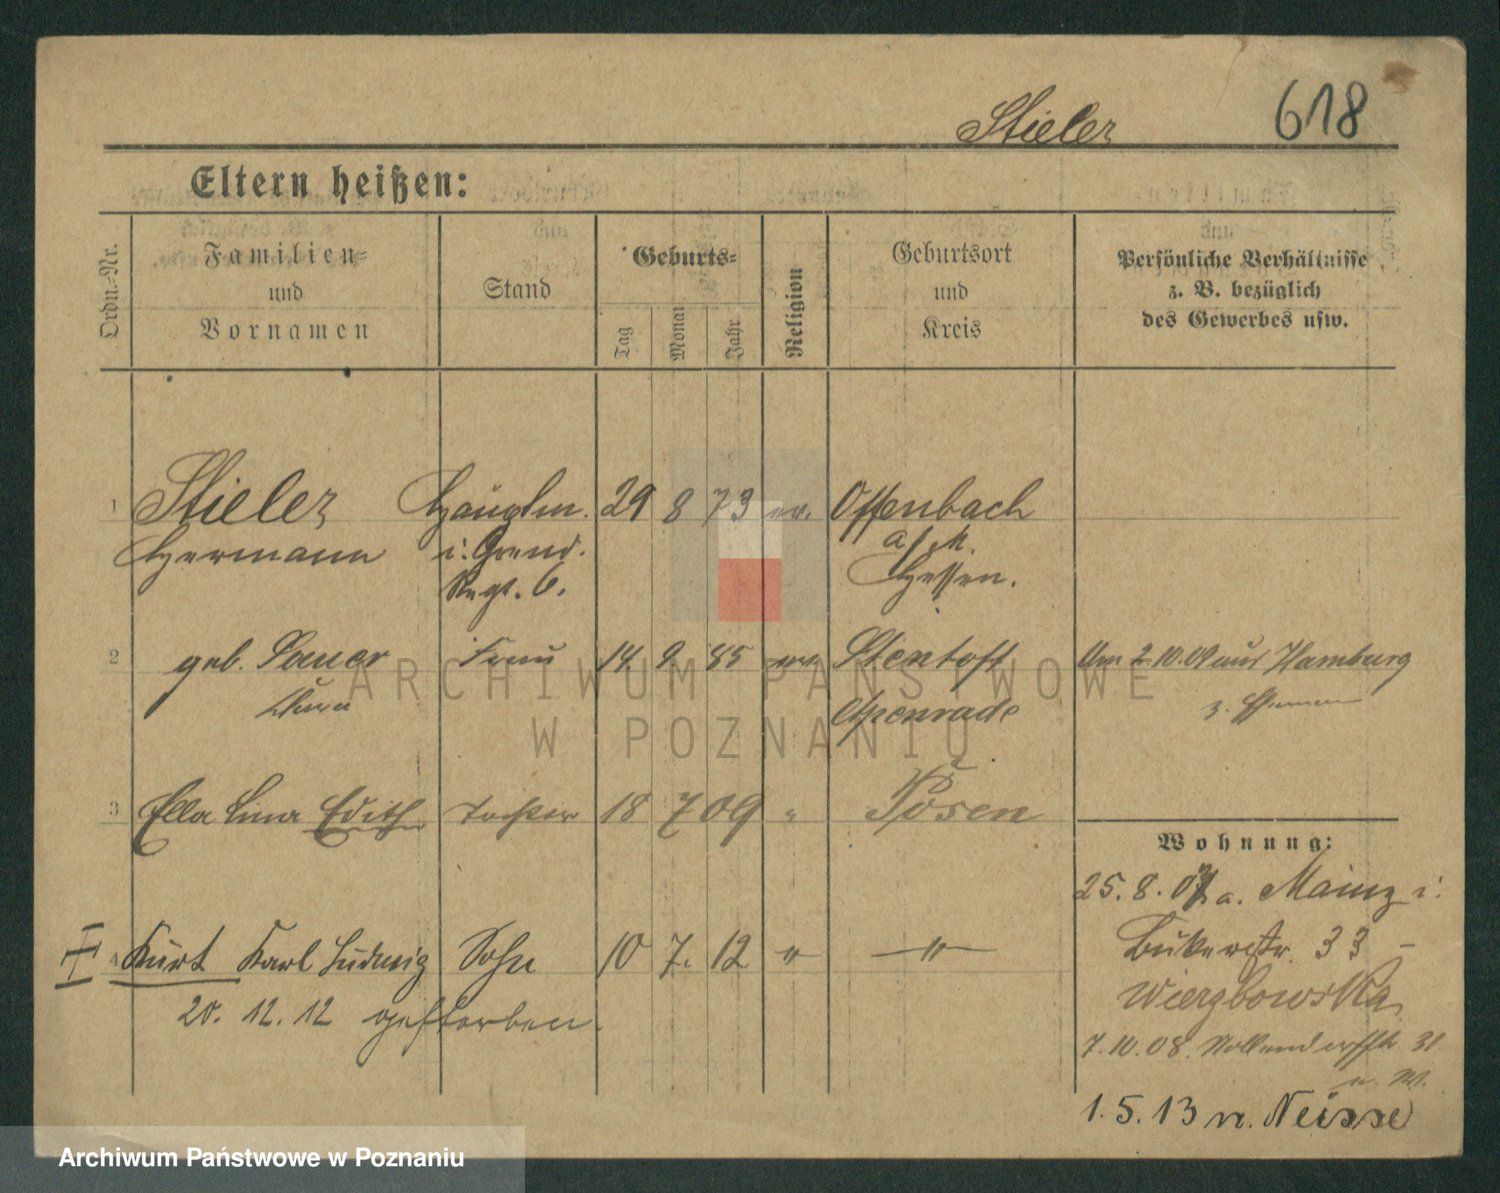 Stieler 618
Eltern heißen:
Ordn.-Nr. Familien= und Vornamen Stand Geburts= Tag Monat Jahr Religion Geburtsort und Kreis Persönliche Verhältnisse z. B. bezüglich des Gewerbes usw.
1 Stieler Hauptm. 29 8 73 ev. Offenbach
Hermann i. Grend. a/M.
Regt. 6. Hessen.
2 geb. Sauer Frau 14 9 85 ev. Stentoft Am 2.10.09 aus Hamburg
Apenrade z.
3 Ella Lina Edith Tochter 18 7 09 " Posen
Wohnung:
25.8.07 a. Mainz i.
Bukerstr. 33 -
Wierzbowska
4 Kurt Karl Ludwig Sohn 10 7. 12 " —"—
20. 12. 12 gestorben.
7.10.08. Nollendorfstr. 31
n. W.
1.5.13 n. Neisse
ARCHIWUM PAŃSTWOWE
W POZNANIU
Archiwum Państwowe w Poznaniu